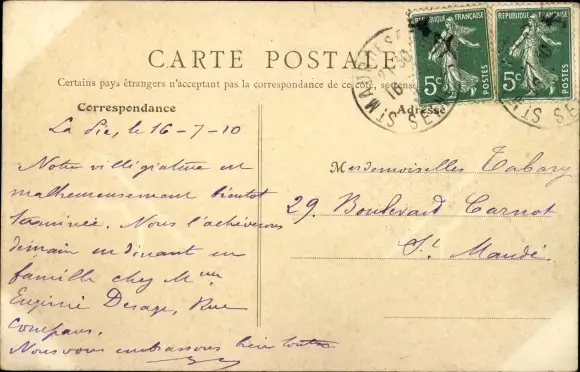 CARTE POSTALE
Certains pays étrangers n'acceptant pas la correspondance de ce côté, se
Correspondance
Adresse
RÉPUBLIQUE FRANÇAISE
5c
POSTES
REPUBLIQUE FRANÇAISE
5c
POSTES
ST MAUR
SEINE
La Pie, le 16-7-10
Notre villégiature est
malheureusement bientôt
terminée. Nous l'achèverons
demain en dînant en
famille chez Mme
Eugénie Desage, Rue
Compans.
Nous vous embrassons bien toutes
Mesdemoiselles Tabary
29. Boulevard Carnot
St Mandé.